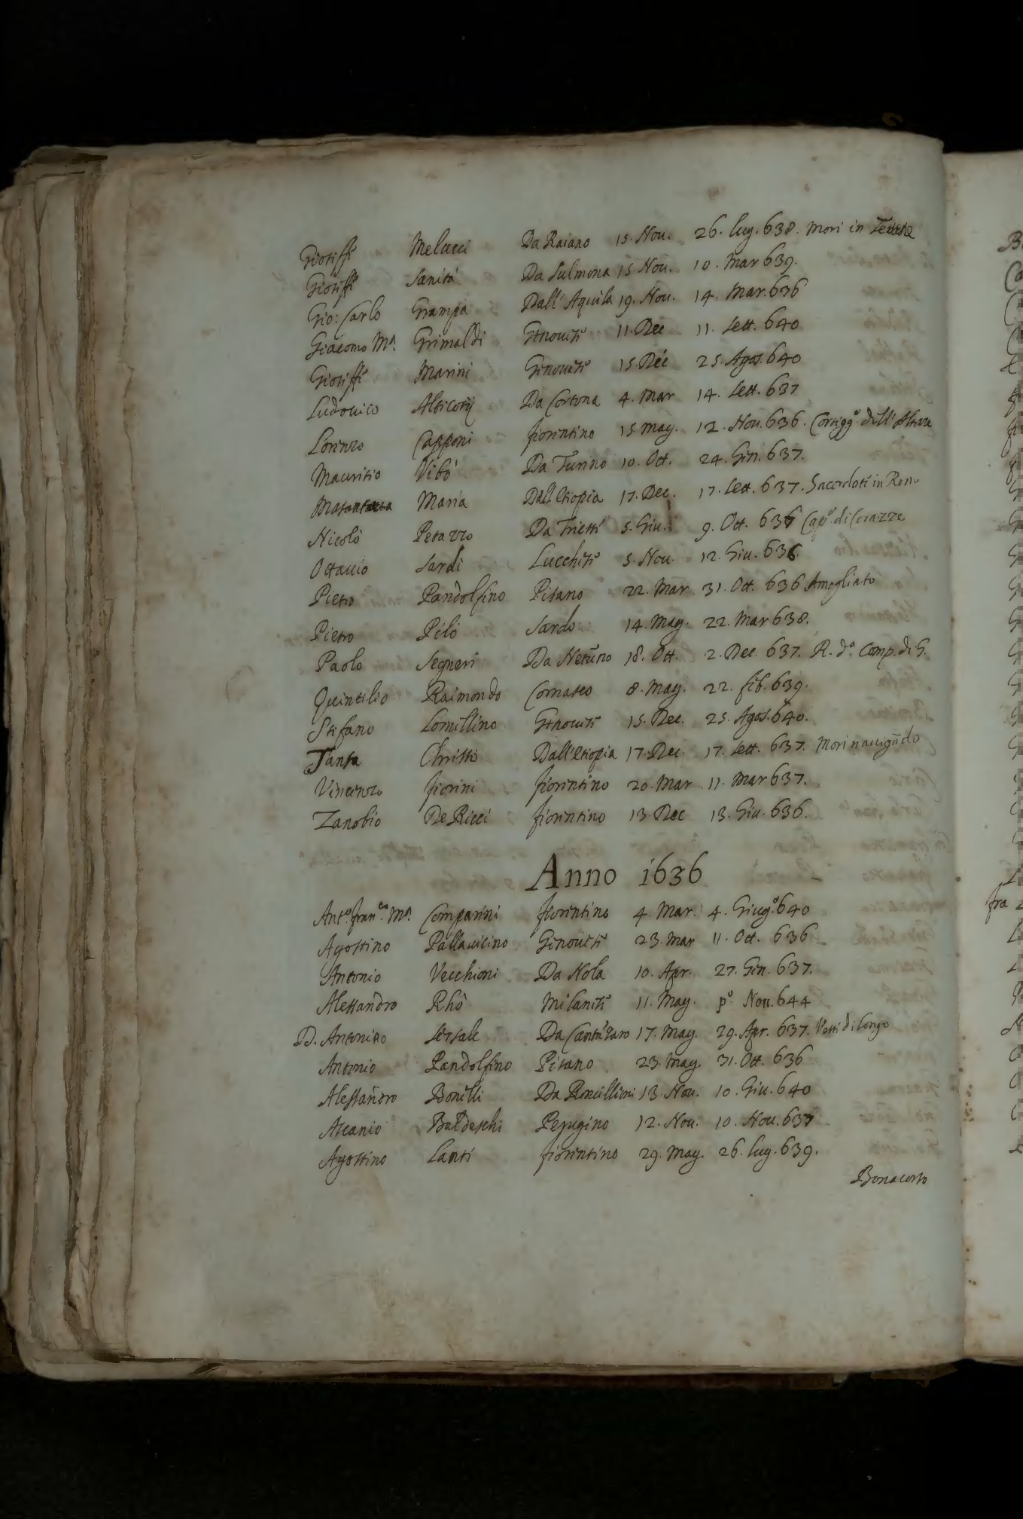 Gioseffe Melucci Da Raiano 15. Nou. 26. lug. 638. Mori in
Gioseffe Sanità Da Sulmona 15 Nou. 10. Mar 639.
Gio: Carlo Grampa Dall'Aquila 19. Nou. 14. Mar. 636
Giacomo Mª. Grimaldi Genouese 11. Dec 11. Sett. 640
Gioseffe Marini Genouese 15. Dec 25. Agos. 640
Ludouico Alticozzi Da Cortona 4. Mar 14. Sett. 637
Lorenzo Capponi fiorentino 15 may. 12. Nou. 636.
Mauritio Vibò Da Turino 10. Ott. 24. Gen. 637.
Maria Dall'Etiopia 17. Dec. 17. Sett. 637. Sacerdote in
Nicolò Petazzo Da Trieste 5. Giu. 9. Ott. 636 di Corazze
Ottauio Sardi Lucchese 5. Nou. 12. Giu. 636.
Pietro Pandolfino Pisano 22. Mar 31. Ott. 636 Amogliato
Pietro Pilò Sardo 14. May. 22. Mar 638.
Paolo Segneri Da Netuno 18. Ott. 2. Dec 637. R. dª. Comp. di G.
Quintilio Raimondo Comasco 8. May. 22. feb. 639.
Stefano Lomellino Genouese 15. Dec. 25. Agos. 640.
Tansa Christos Dall'Etiopia 17. Dec 17. Sett. 637. Mori nauigãdo
Vincenzo fiorini fiorentino 20. Mar 11. Mar 637.
Zanobio De Ricci fiorentino 13. Dec 13. Giu. 636.
Anno 1636
Antº. franᶜᵒ. Mª. Comparini fiorentino 4. Mar. 4. Giugº. 640
Agostino Pallauicino Genouese 23. Mar 11. Ott. 636
Antonio Vecchioni Da Nola 10. Apr. 27. Gen. 637.
Alessandro Rhò Milanese 11. May. pº. Nou. 644
D. Antonino Sersale Da 17. May 29. Apr. 637. Vesti di longo
Antonio Pandolfino Pisano 23. May. 31. Ott. 636
Alessandro Bonelli Da Roncillioni 13. Nou. 10. Giu. 640
Ascanio Baldeschi Perugino 12. Nou. 10. Nou. 637
Agostino Lanti fiorentino 29. May. 26. lug. 639.
Bonacorso